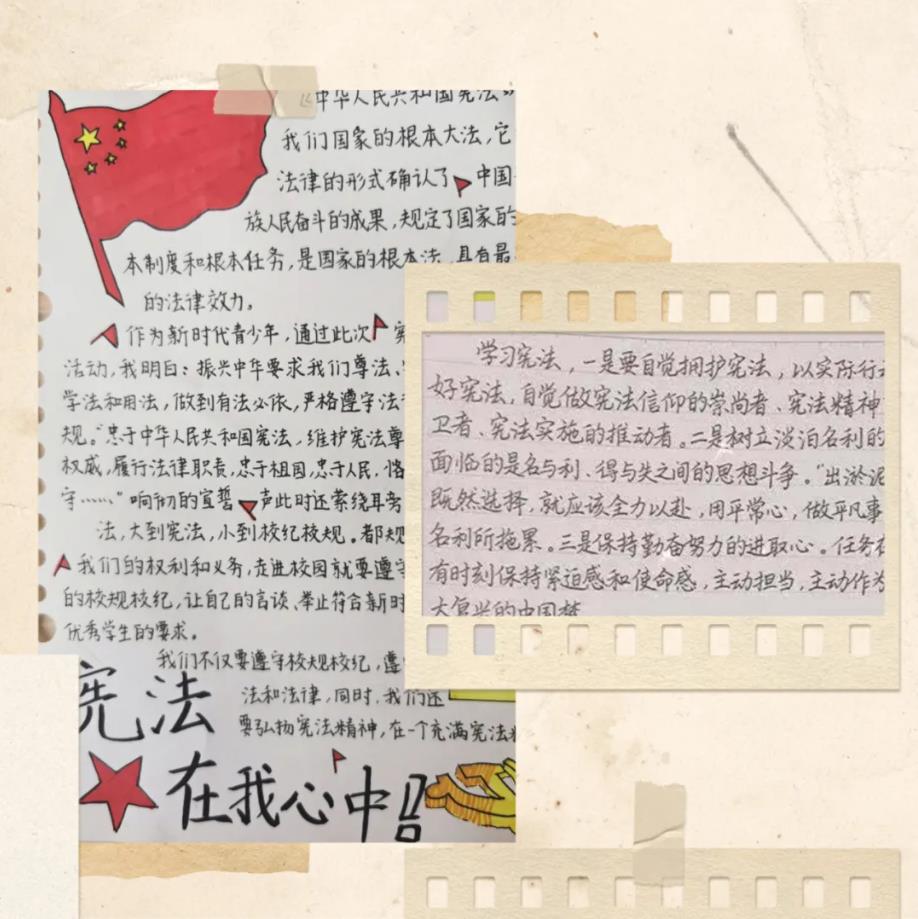 《中华人民共和国宪法》
我们国家的根本大法，它
法律的形式确认了中国
族人民奋斗的成果，规定了国家的
本制度和根本任务，是国家的根本法，具有最
的法律效力。
作为新时代青少年，通过此次宪
活动，我明白：振兴中华要求我们尊法、
学法和用法，做到有法必依，严格遵守法
规。“忠于中华人民共和国宪法，维护宪法尊
权威，履行法律职责，忠于祖国，忠于人民，恪
守……”响彻的宣誓声此时还萦绕耳旁
法，大到宪法，小到校纪校规。都规
我们的权利和义务，走进校园就要遵守
的校规校纪，让自己的言谈、举止符合新时
优秀学生的要求。
我们不仅要遵守校规校纪，遵
法和法律，同时，我们还
要弘扬宪法精神，在一个充满宪法
宪法
在我心中
学习宪法，一是要自觉拥护宪法，以实际行
好宪法，自觉做宪法信仰的崇尚者、宪法精神
卫者、宪法实施的推动者。二是树立淡泊名利的
面临的是名与利、得与失之间的思想斗争。“出淤泥
既然选择，就应该全力以赴，用平常心，做平凡事
名利所拖累。三是保持勤奋努力的进取心。任务
有时刻保持紧迫感和使命感，主动担当，主动作为
大复兴的中国梦